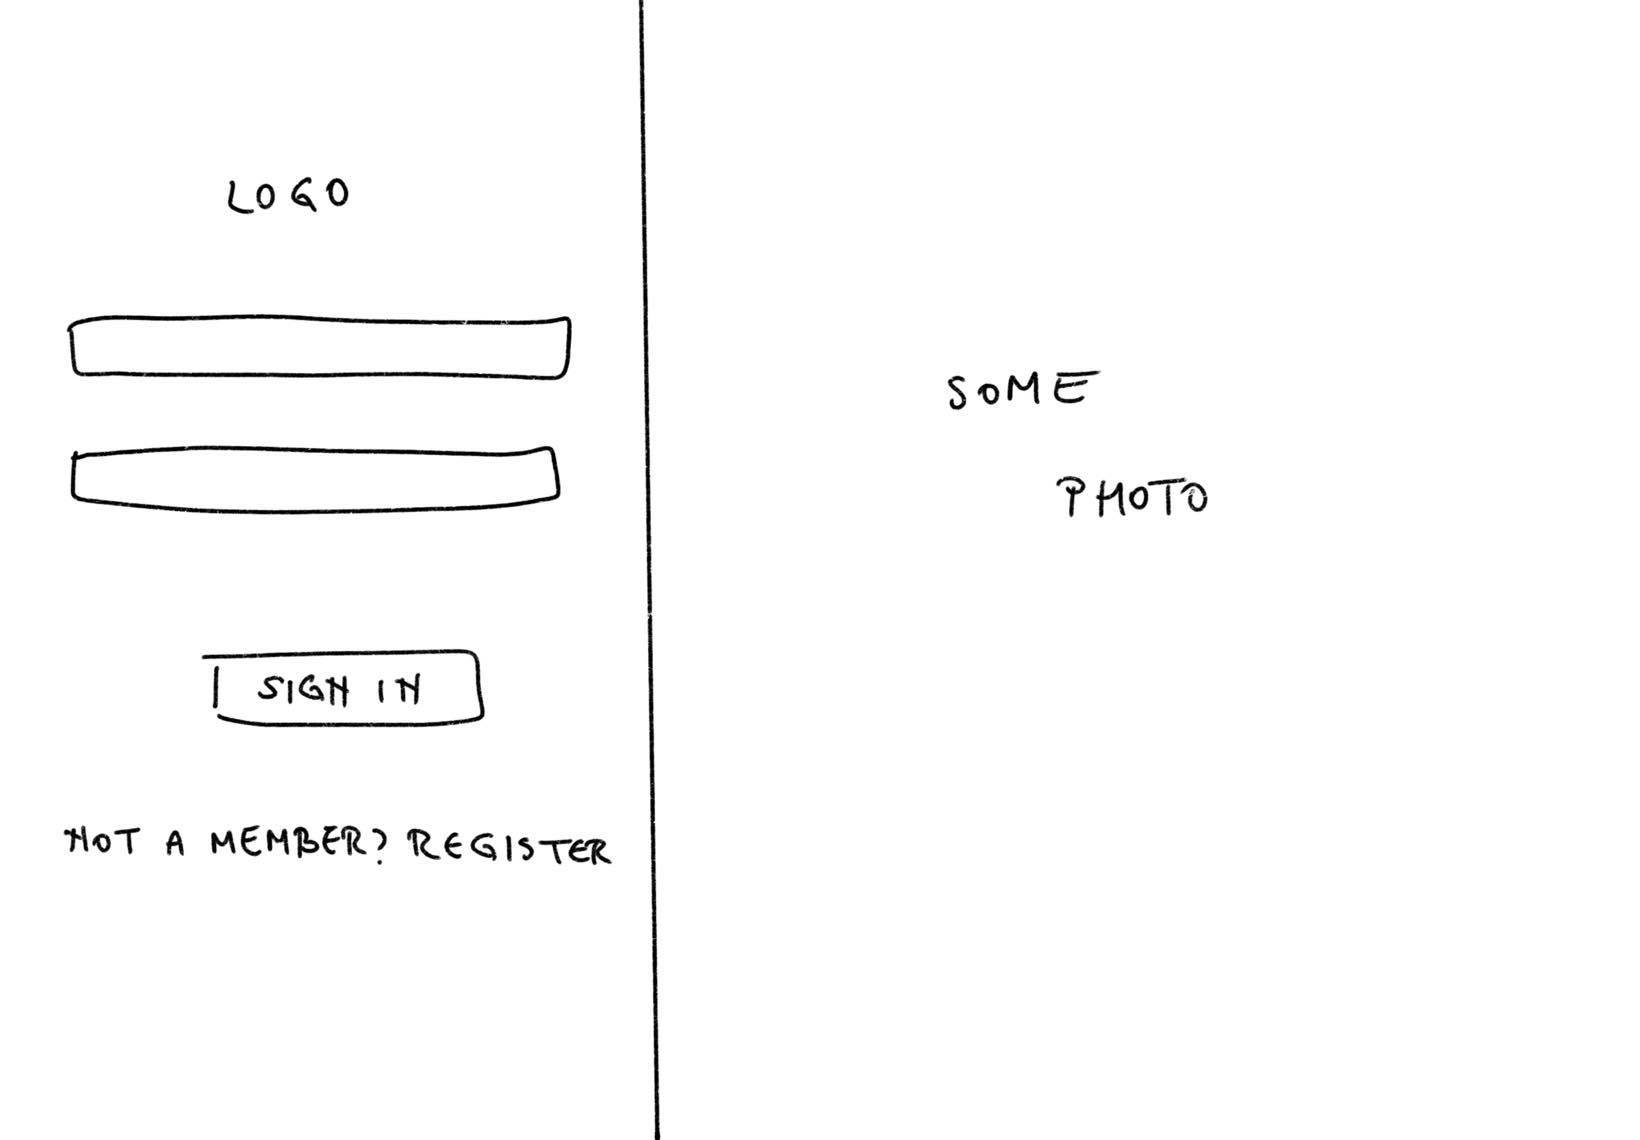 LOGO
SIGN IN
NOT A MEMBER? REGISTER
SOME
PHOTO